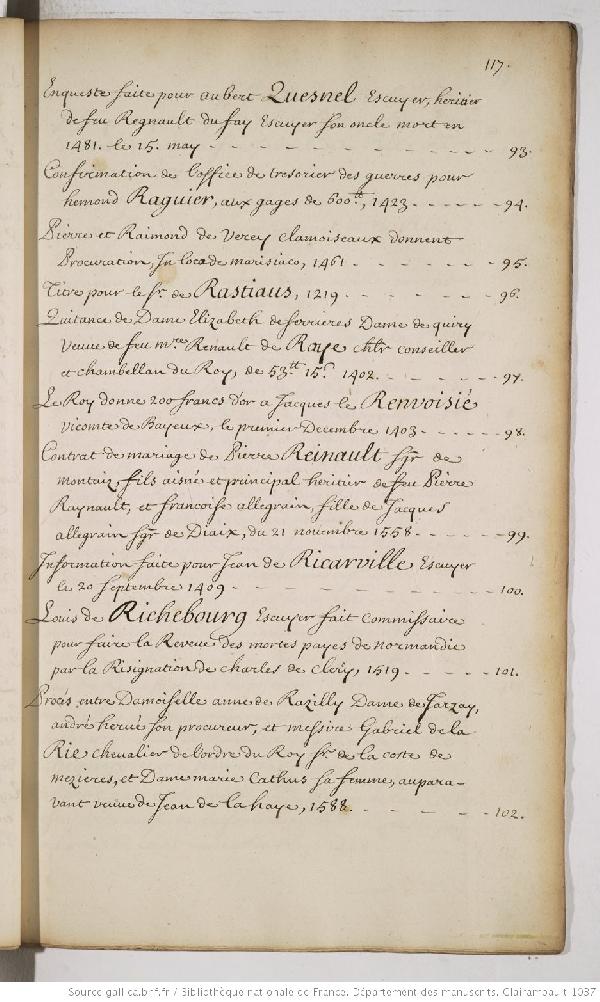 117.
Enqueste faite pour aubert Quesnel Escuyer, heritier
de feu Regnault du fay Escuyer son oncle mort en
1481. le 15. may - - - - - - - - - - 93.
Confirmation de l'office de tresorier des guerres pour
hemond Raguier, aux gages de 600.tt, 1423. - - - - - - 94.
Pierre et Raimond de Verey clamoiseaux donnent
Procuration, In loco de marisiaco, 1461 - - - - - - 95.
Titre pour le sr. de Rastiaus, 1219 - - - - - - 96.
Quitance de Dame Elizabeth de ferrieres Dame de quiry
veuve de feu mre. Renault de Raye chlr conseiller
et chambellan du Roy, de 53.tt 15.s 1402. - - - - - 97.
Le Roy donne 200 francs d'or a Jacques le Renvoisié
vicomte de Bayeux, le premier Decembre 1403 - - - - - 98.
Contrat de mariage de Pierre Reinault sgr. de
montaiz, fils aisné et principal heritier de feu Pierre
Raynault, et francoise allegrain, fille de Jacques
allegrain sgr. de Diaix, du 21 novembre 1558 - - - - - 99.
Information faite pour Jean de Ricarville Escuyer
le 20 septembre 1409 - - - - - - - - - 100.
Louis de Richebourg Escuyer fait Commissaire
pour faire la Reveue des mortes payes de normandie
par la Résignation de charles de clery, 1519 - - - - - 101.
Procés entre Damoiselle anne de Razilly Dame de Jarzay,
andré herué son procureur, et messire Gabriel de la
Rie chevalier de l'ordre du Roy sr. de la coste de
mezieres, et Dame marie Cathus sa femme, aupara-
vant veuve de Jean de la haye, 1588. - - - - - 102.
Source gallica.bnf.fr / Bibliothèque nationale de France. Département des manuscrits. Clairambault 1037